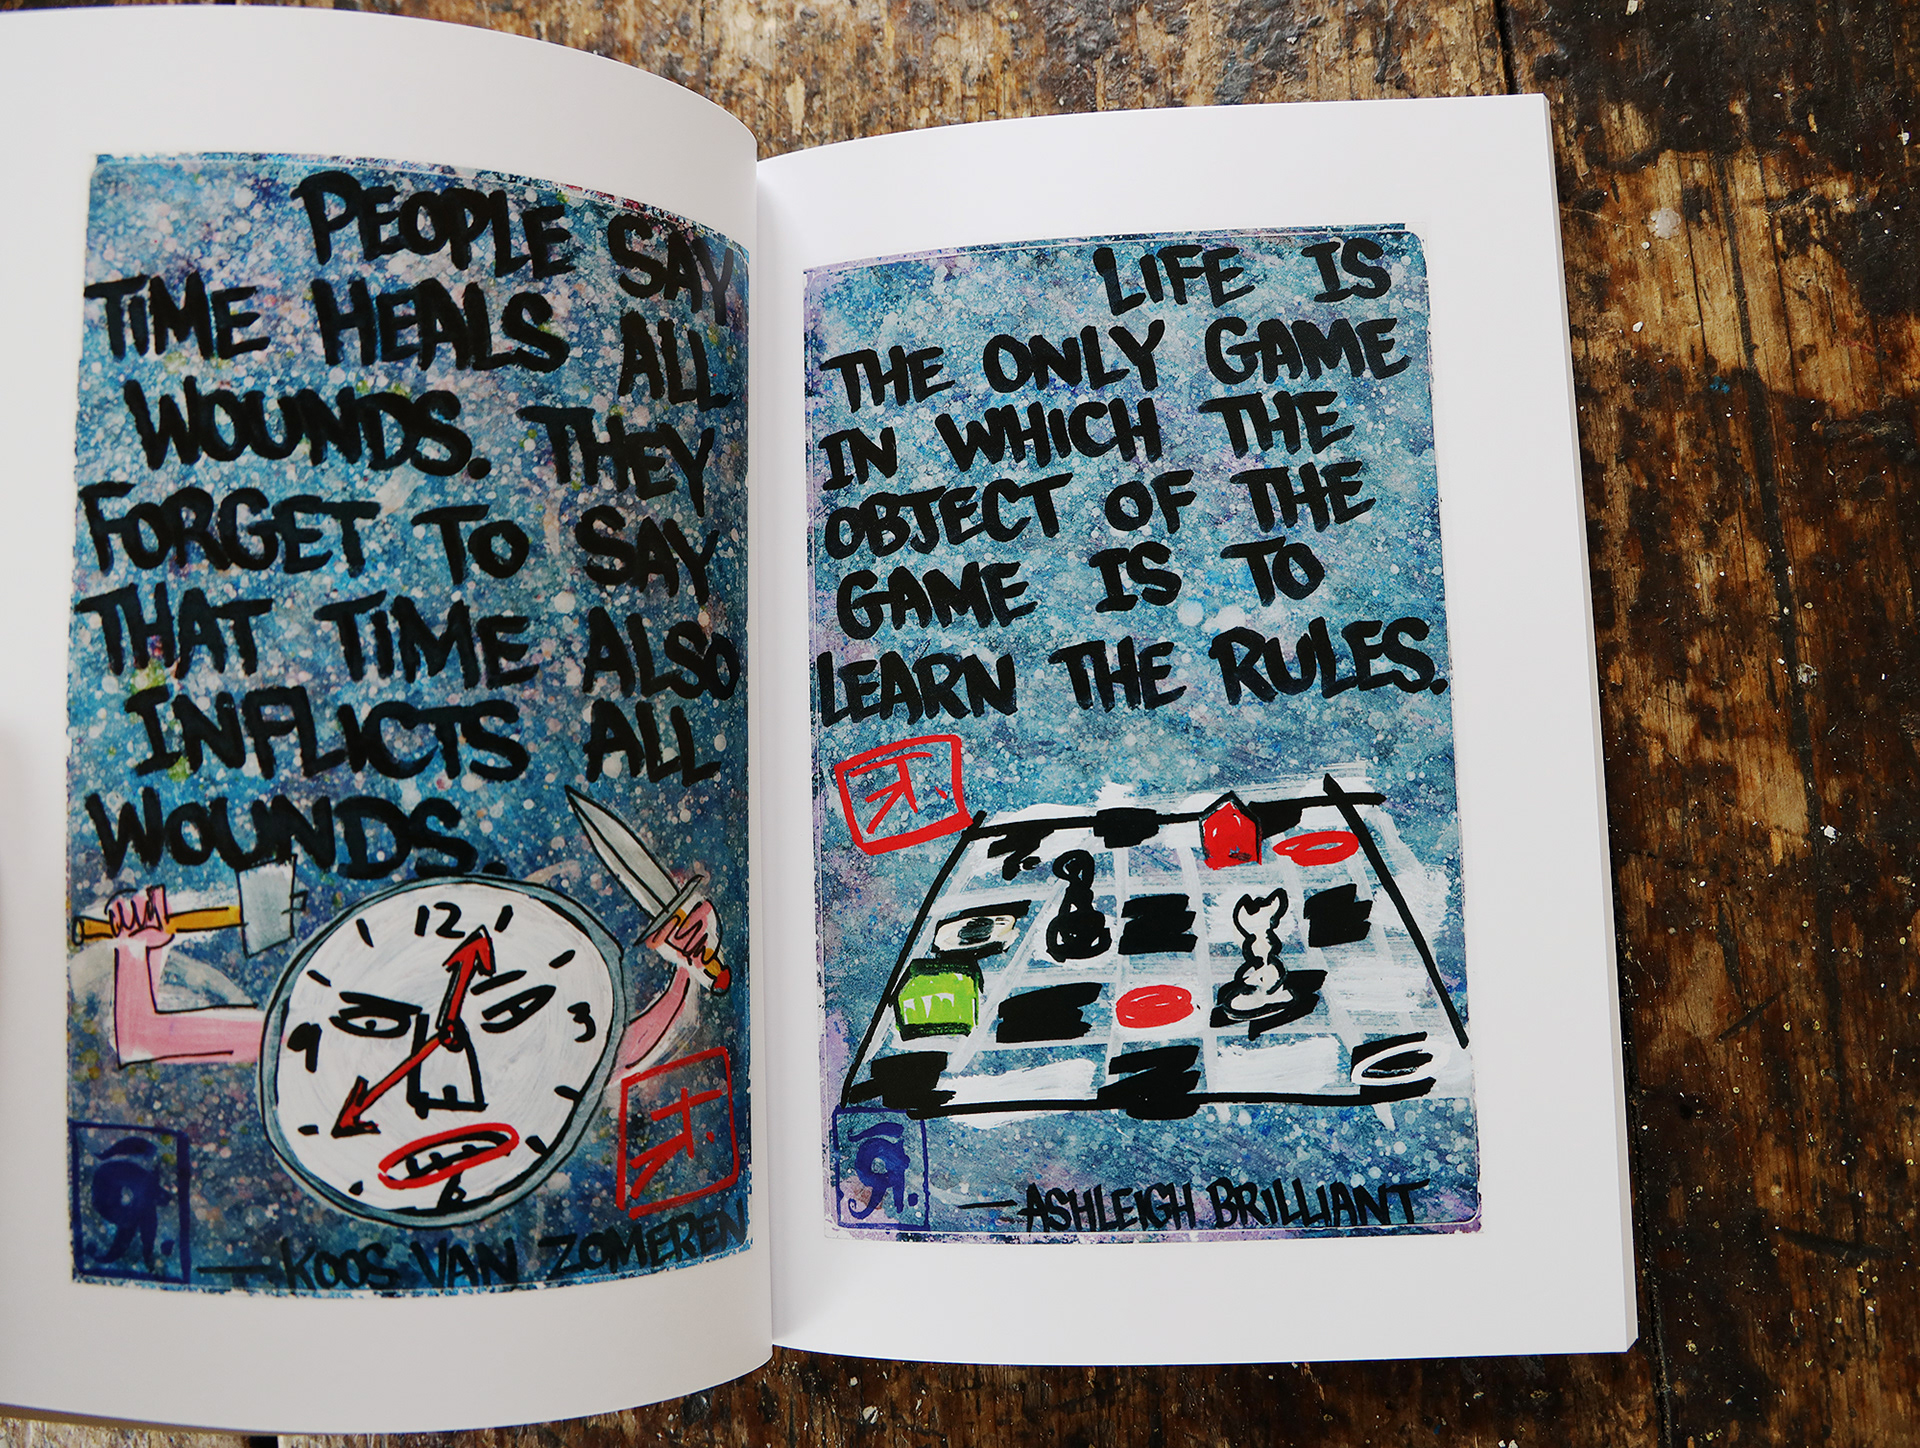 PEOPLE SAY
TIME HEALS ALL
WOUNDS. THEY
FORGET TO SAY
THAT TIME ALSO
INFLICTS ALL
WOUNDS.
12
3
9
6
— KOOS VAN ZOMEREN
LIFE IS
THE ONLY GAME
IN WHICH THE
OBJECT OF THE
GAME IS TO
LEARN THE RULES.
— ASHLEIGH BRILLIANT